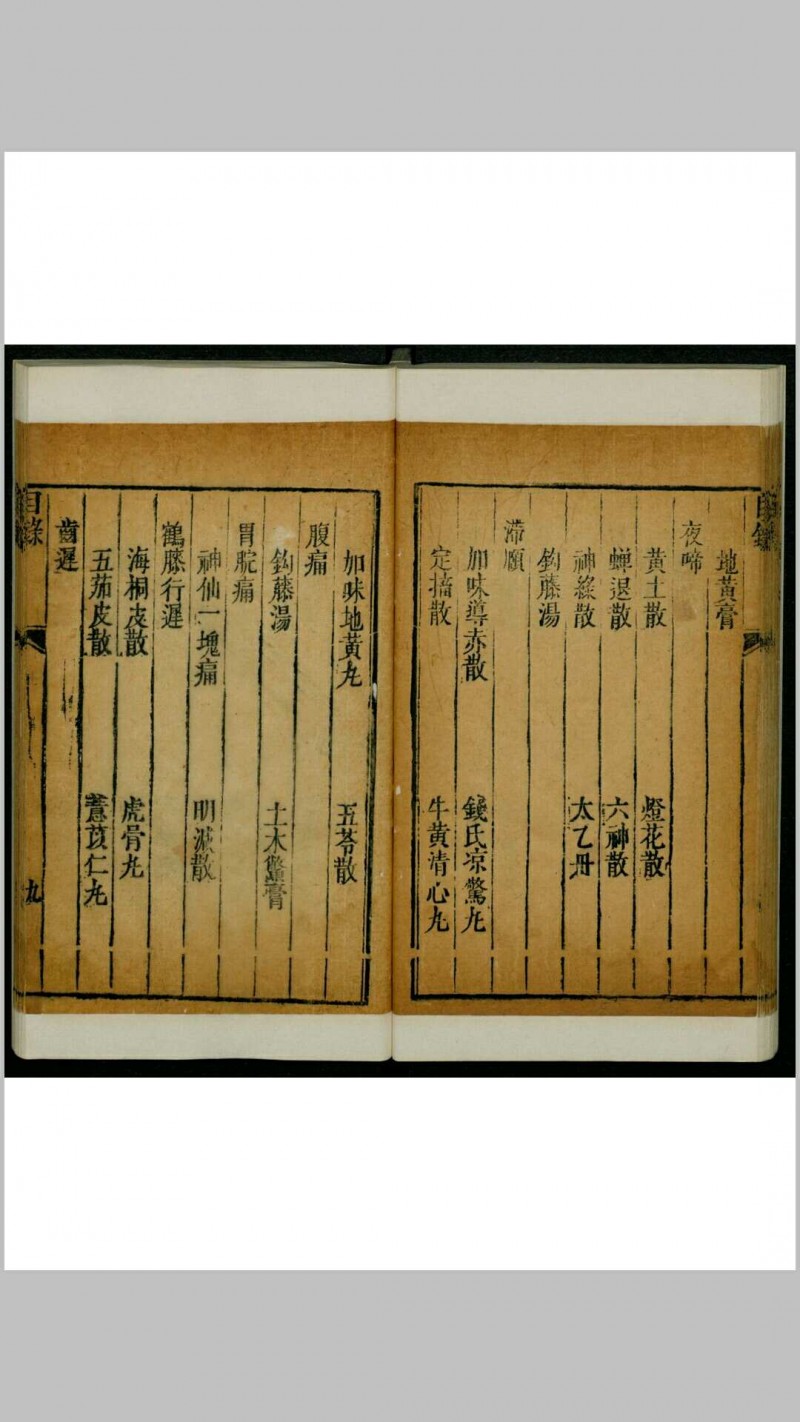 目錄
地黃膏
夜啼
黃土散 燈花散
蟬退散 六神散
神綠散 太乙丹
鈎藤湯
滯頤
加味導赤散 錢氏凉驚丸
定搐散 牛黃清心丸
加味地黃丸 五苓散
腹痛
鈎藤湯 土木鱉膏
胃脘痛
神仙一塊痛 明滅散
鶴膝行遲
海桐皮散 虎骨丸
五茄皮散 薏苡仁丸
齒遲
目錄 九